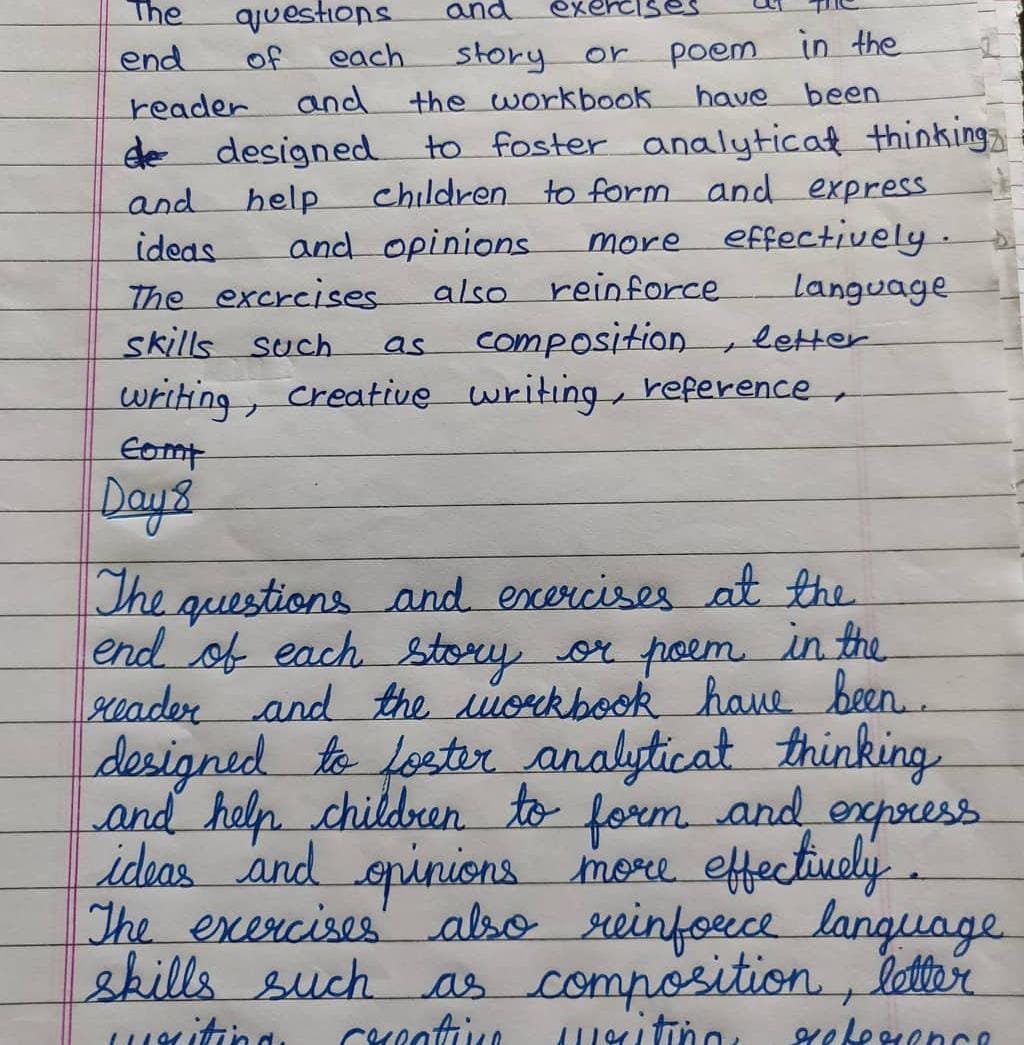 The questions and exercises at the
end of each story or poem in the
reader and the workbook have been
de designed to foster analyticat thinking
and help children to form and express
ideas and opinions more effectively.
The excrcises also reinforce language
skills such as composition, letter
writing, creative writing, reference,
Comp
Day 8
The questions and exercises at the
end of each story or poem in the
reader and the workbook have been.
designed to foster analyticat thinking
and help children to form and express
ideas and opinions more effectively.
The exercises also reinforce language
skills such as composition, letter
writing, creative writing, reference